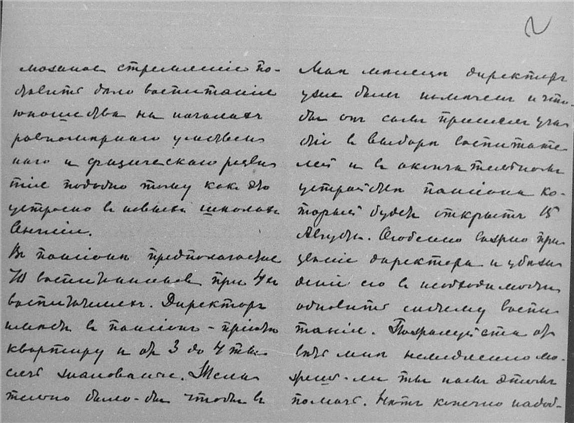 можное стремленіе по-
ставить дѣло воспитанія
юношества на началахъ
равномѣрнаго умствен
наго и физическаго разви
тія подобно тому какъ это
устроено въ новыхъ школахъ
Англіи.
Въ пансіонѣ предполагается
воспитанниковъ при 4хъ
воспитателяхъ. Директоръ
имѣетъ въ пансіонѣ
квартиру и отъ 3 до 4 ты-
сячъ жалованья. Жела
тельно было-бы чтобы въ
Маѣ мѣсяцѣ директоръ
уже былъ намѣченъ и что-
бы онъ самъ принялъ уча
стіе въ выборѣ воспитате
лей и въ окончательномъ
устройствѣ пансіона ко-
торый будетъ открытъ 15
Августа. Особенно важно
директора и убѣж
деніе его въ необходимости
обновить систему воспи
танія. Пожалуйста от
вѣть мнѣ немедленно мо-
жешь-ли ты намъ въ этомъ
помочь. конечно